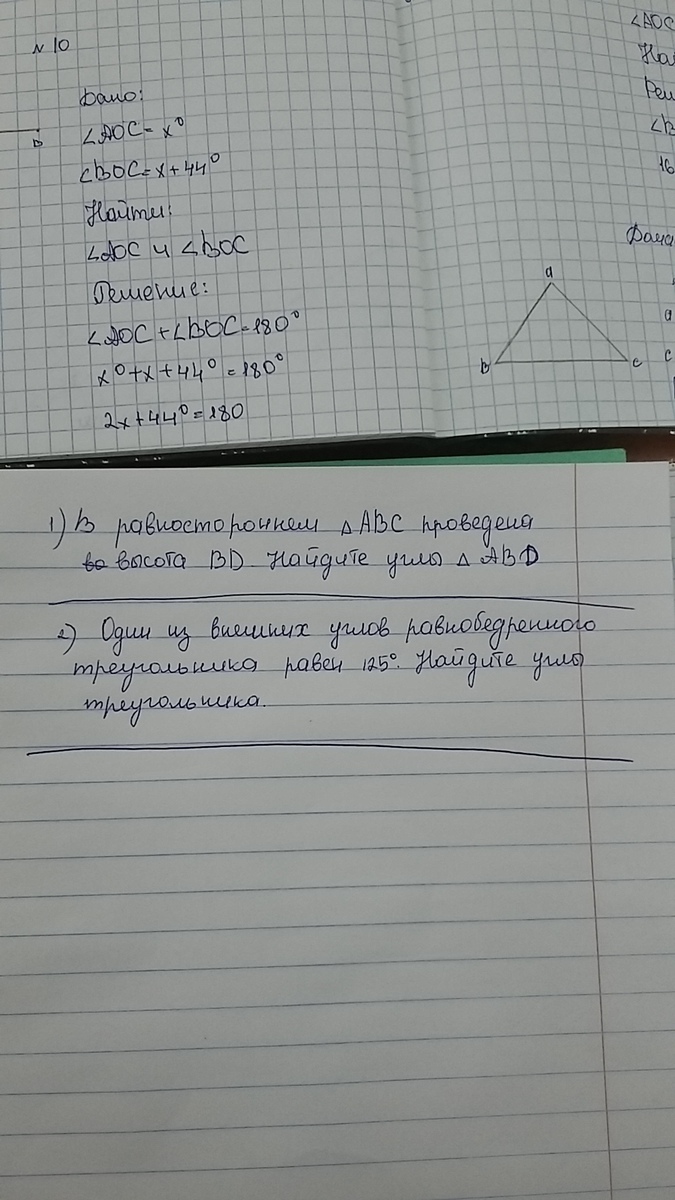 № 10
Дано:
∠AOC = x°
∠BOC = x + 44°
Найти:
∠AOC и ∠BOC
Решение:
∠AOC + ∠BOC = 180°
x° + x + 44° = 180°
2x + 44° = 180
∠AOC
На
Реш
16
Дано
a
b
c
a
c
1) В равностороннем △ ABC проведена
высота BD. Найдите углы △ ABD
2) Один из внешних углов равнобедренного
треугольника равен 125°. Найдите углы
треугольника.